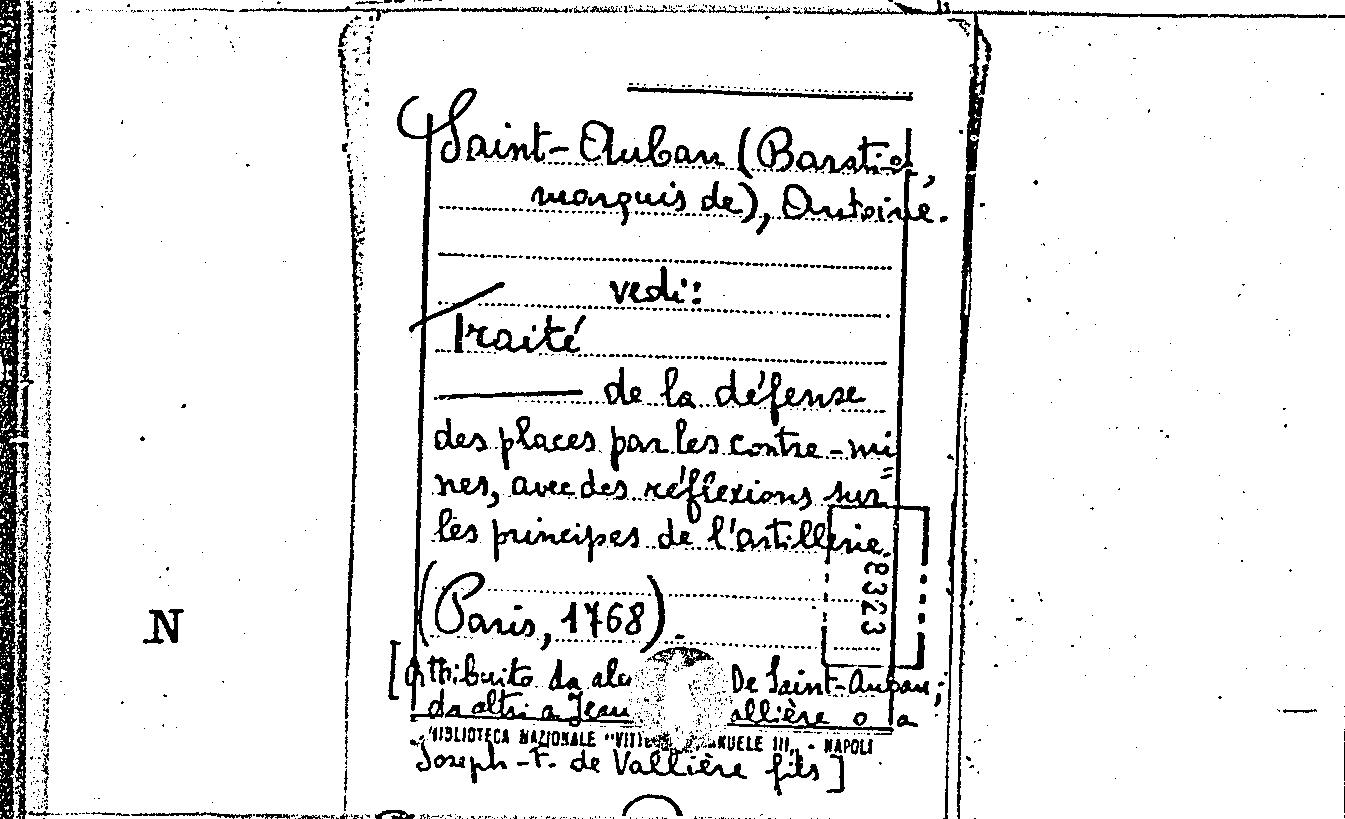 Saint-Auban (Baratiol,
marquis de), Antoine.
vedi:
Traité
de la défense
des places par les contre-mi
nes, avec des réflexions sur
les principes de l'artillerie.
(Paris, 1768).
8323
N
[Attribuito da De Saint-Auban;
da altri a Jean allière o a
BIBLIOTECA NAZIONALE "VITT NUELE III" - NAPOLI
Joseph-F. de Vallière fils]